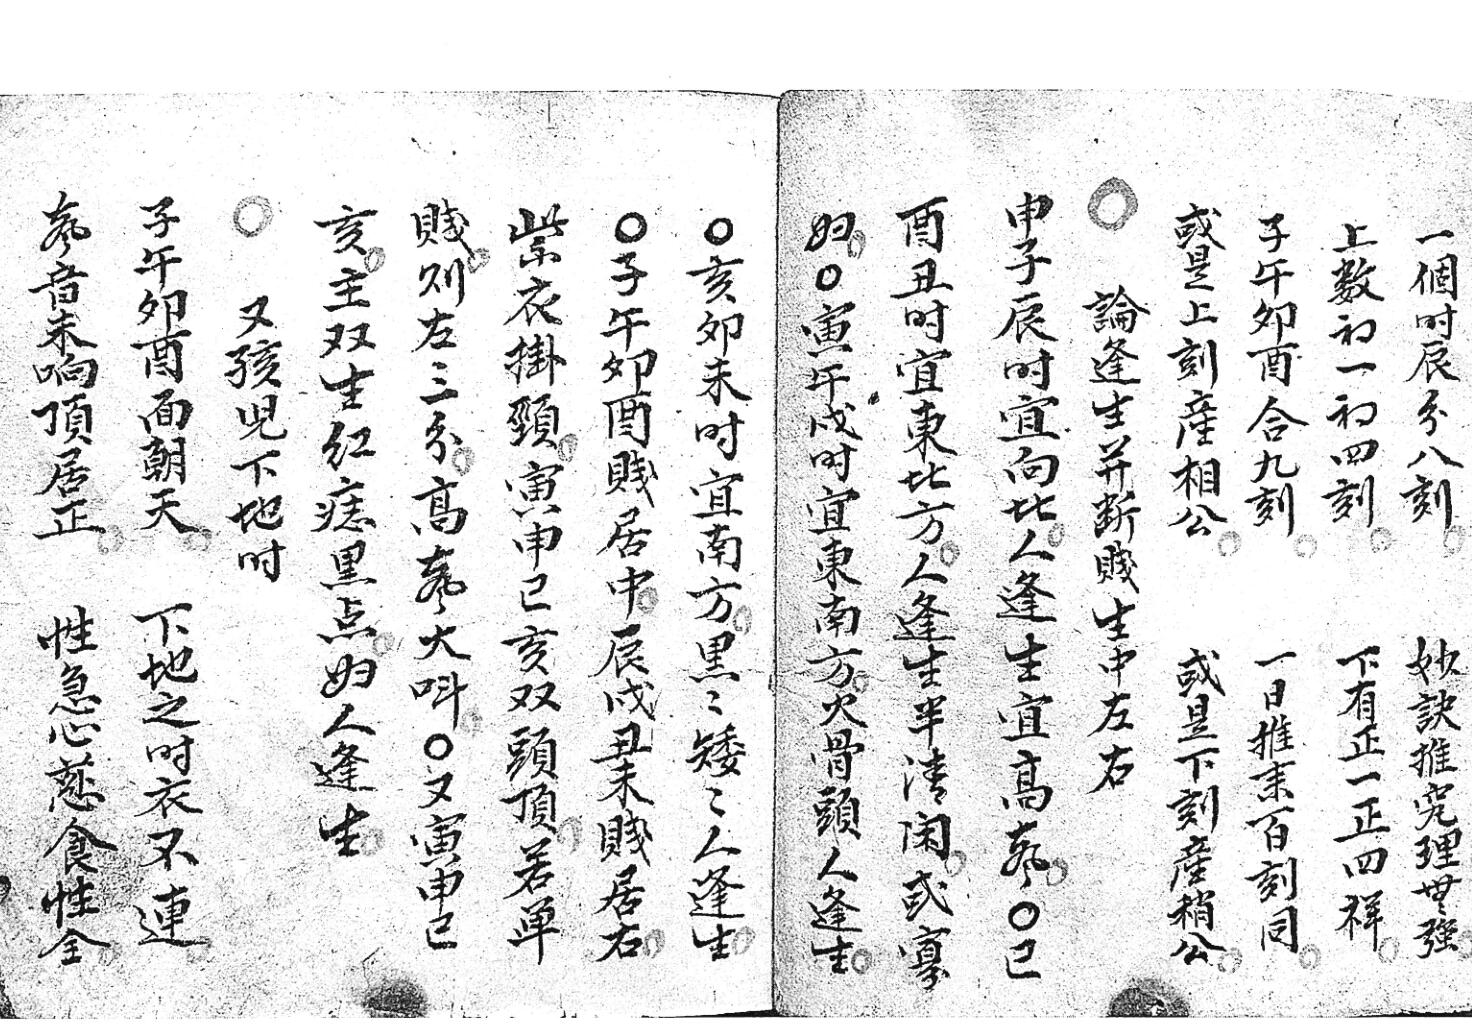 一個时辰分八刻 妙訣推究理無強
上數初一初四刻 下有正一正四祥
子午卯酉合九刻 一日推来百刻同
或是上刻產相公 或是下刻產稍公
○ 論逢生并断賎生中左右
申子辰时宜向北人逢生宜高声○巳
酉丑时宜東北方人逢生半清闲或寡
妇○寅午戌时宜東南方火骨頭人逢生
○亥卯未时宜南方黑〻矮〻人逢生
○子午卯酉賎居中辰戌丑未賎居右
紫衣掛頸寅申巳亥双頭頂若单
賎则左三分高声大呌○又寅申巳
亥主双生红痣黒点妇人逢生
○ 又孩児下地时
子午卯酉面朝天 下地之时衣不連
声音未响頂居正 性急心慈食性全